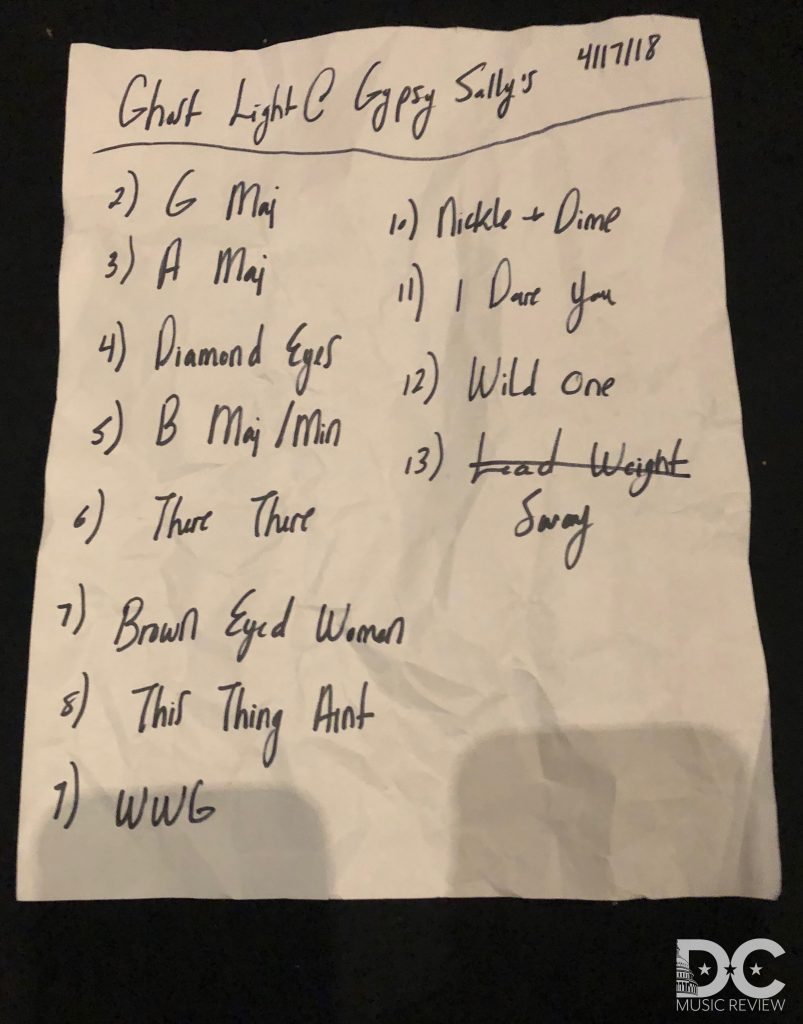 Ghost Light @ Gypsy Sally's
4/17/18
2) G Maj
3) A Maj
4) Diamond Eyes
5) B Maj/Min
6) There There
7) Brown Eyed Women
8) This Thing Aint
9) WWG
10) Nickle + Dime
11) I Dare You
12) Wild One
13) Lead Weight
DC
MUSIC REVIEW